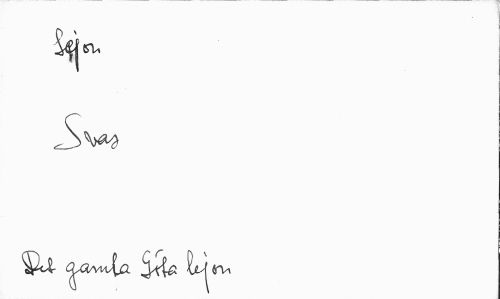 Lejon
Svas
Det gamla Göta lejon